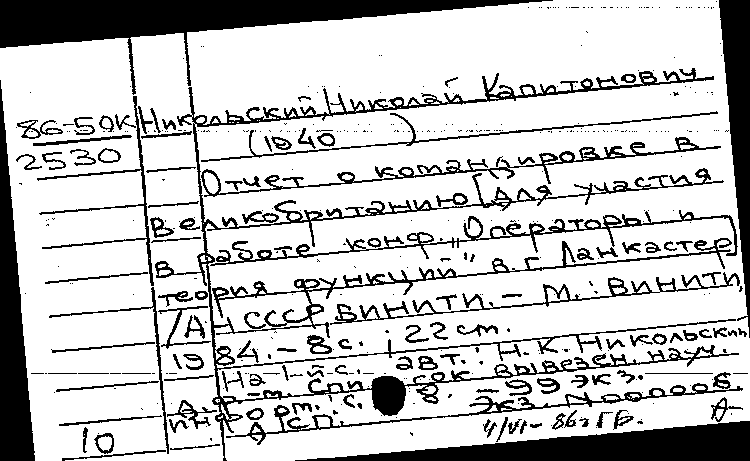 86-50К Никольский, Николай Капитонович
2530 (1940 )
Отчет о командировке в
Великобританию [Для участия
в работе конф. „Операторы и
теория функций" в г. Ланкастер]
/АН СССР, ВИНИТИ. – М.: ВИНИТИ,
1984. – 8 с. ; 22 см.
На 1-й с. авт.: Н.К. Никольский,
д. ф-м. Список вывезен. науч.
информ.: с. 8. – 99 экз.
ДСП. Экз. N00006.
10 4/VI-86г ГР. А-